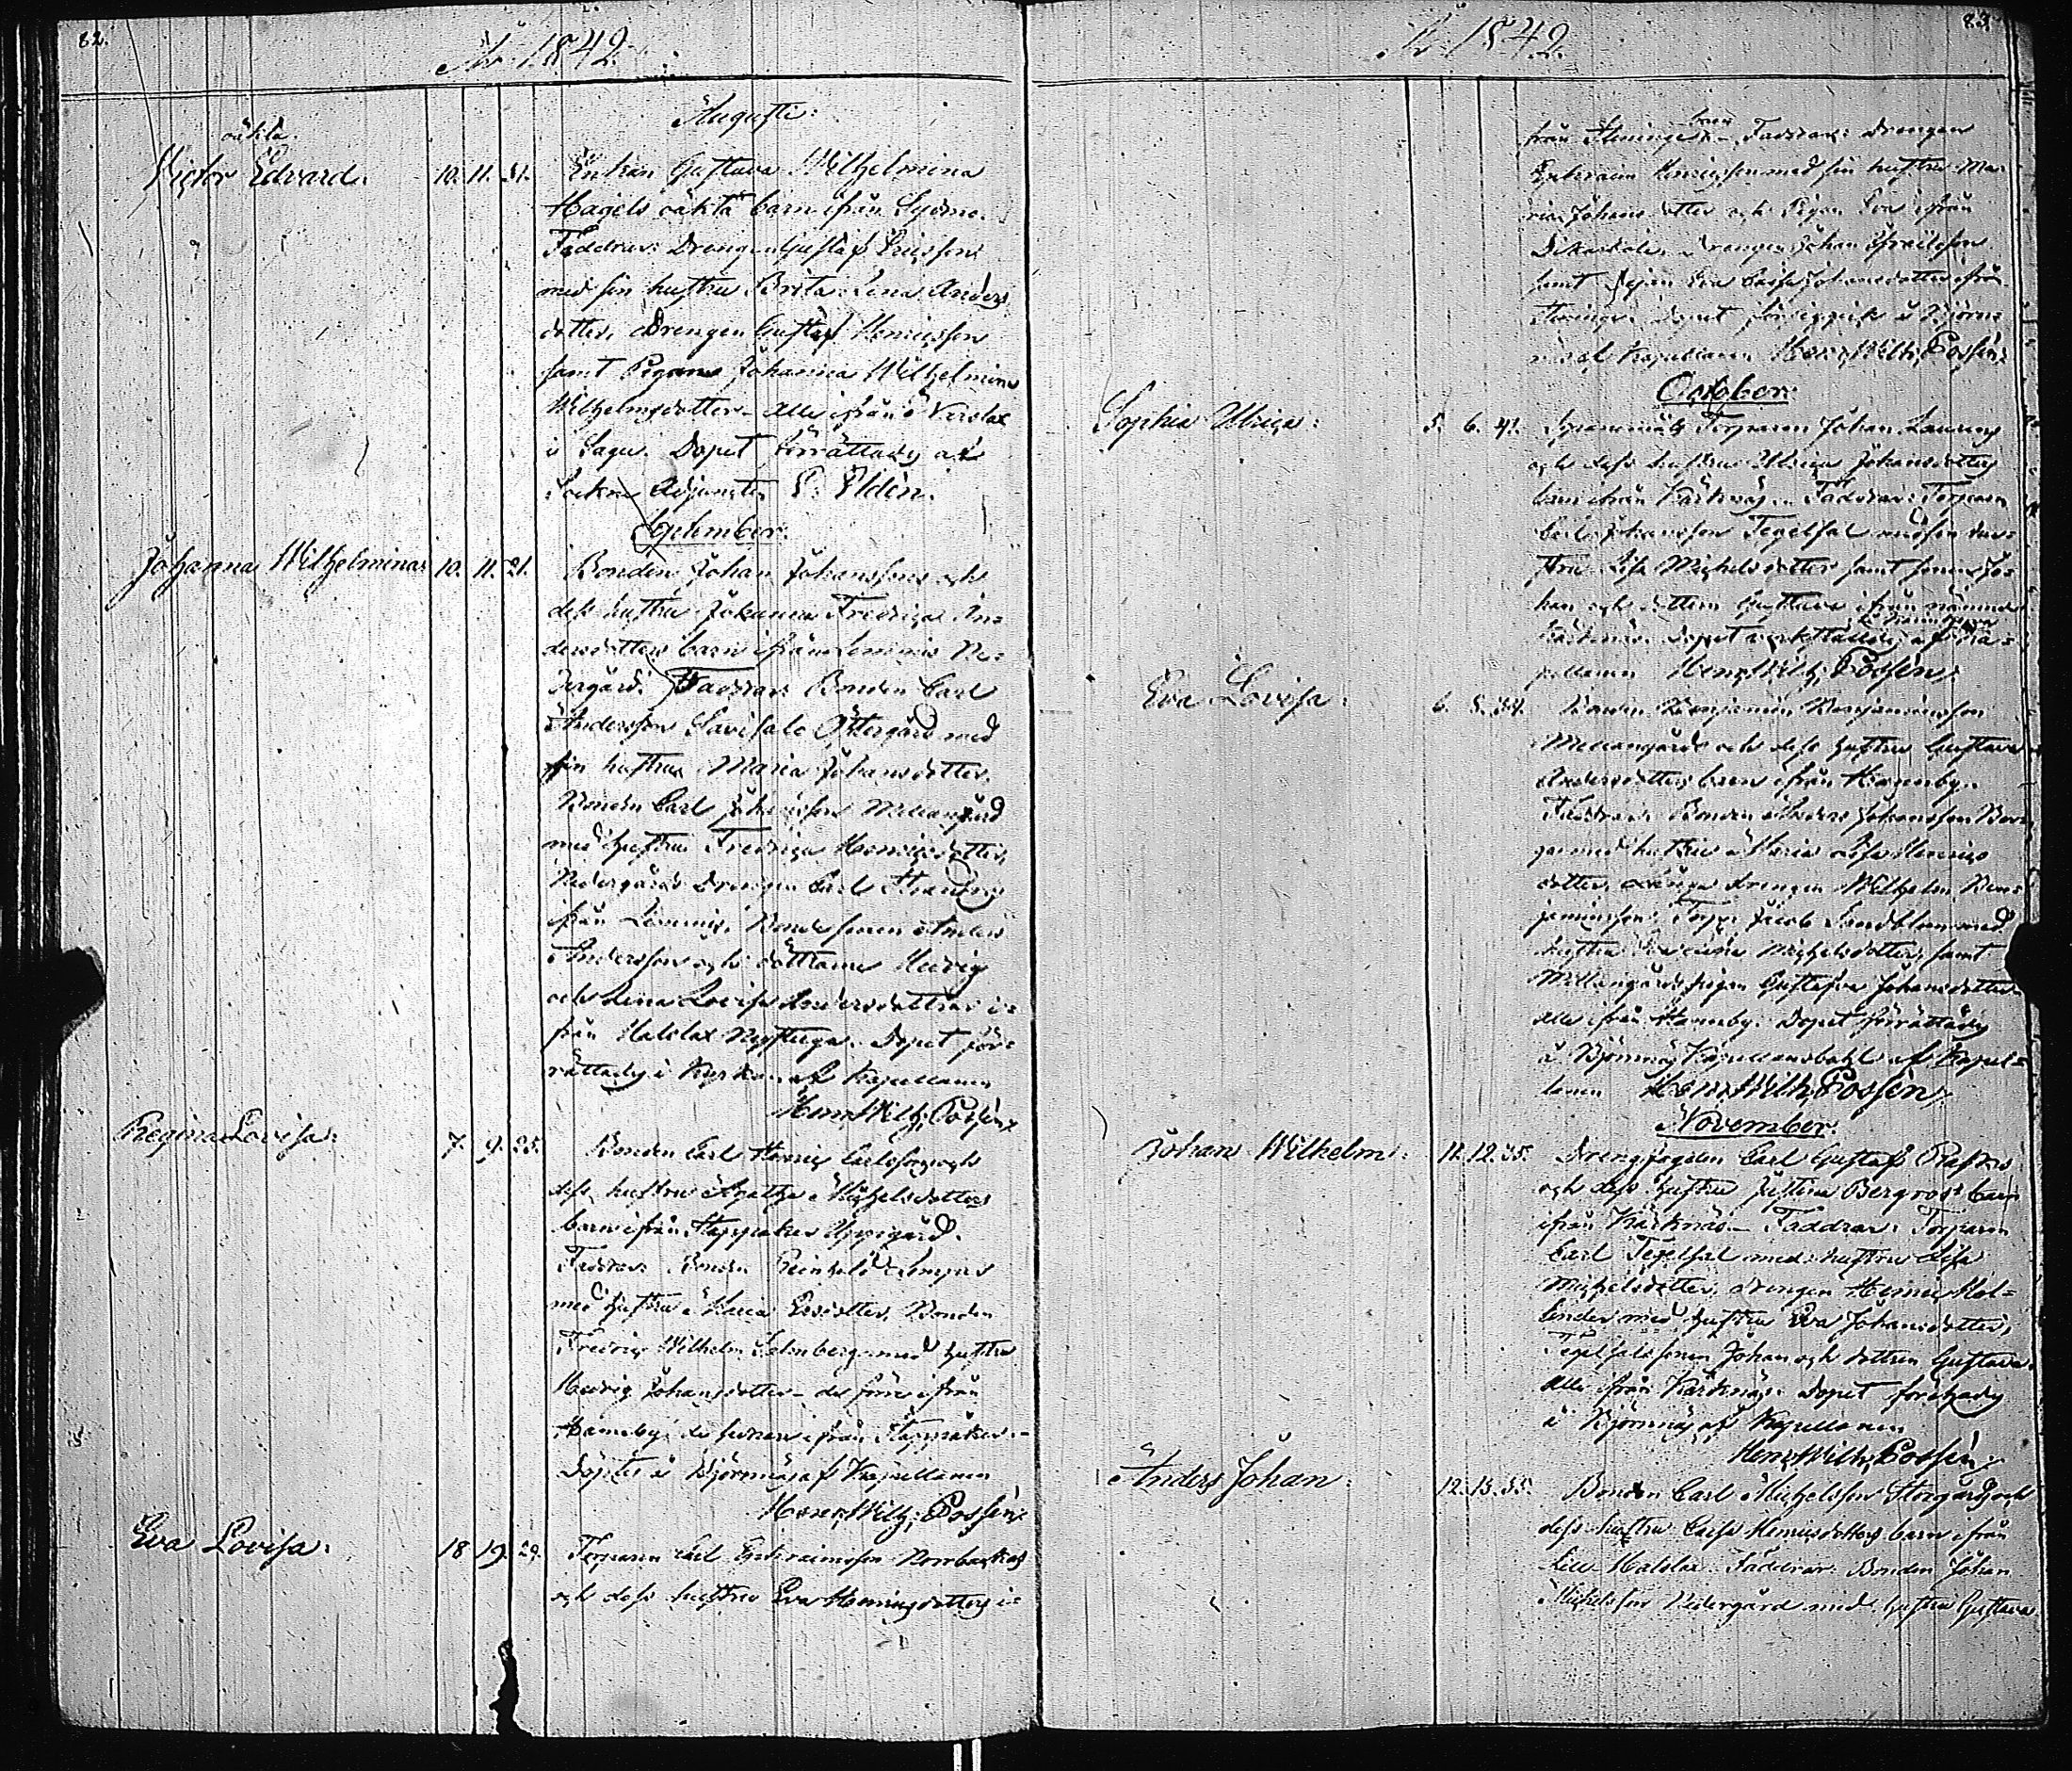 82.
År 1842.
Augusti:
oäkta.
Victor Edvard. 10. 11. 31. Enkan Gustava Wilhelmina
Hagels oäkta barn ifrån Sydmo.
Faddrar: Drengen Gustaf Ericsson
med sin hustru Brita Lena Anders
dotter, Drengen Gustaf Henricsson
samt Pigan Johanna Wilhelmina
Wilhelmsdotter alla ifrån
i Sagu. Dopet förrättades af
Sockne Adjuncten E. Eldén.
September.
Johanna Wilhelmina: 10. 11. 21. Bonden Johan Johanssons och
dess hustru Johanna Fredrica An-
dersdotters barn ifrån Lemmis Ne-
dergård. Faddrar: Bonden Carl
Andersson Savisalo Östergård med
sin hustru Maria Johansdotter,
Bonden Carl Johansson Mellangård
med hustru Fredrica Henricsdotter,
Nedergårds Drengen Carl
ifrån Lemmis, Bonde sonen Anders
Andersson och döttrarne Hedvig
och Lena Lovisa Andersdöttrar i-
från Malslax Nystuga. Dopet för-
rättades i Kyrkan af Kapellanen
Henr. Wilh. Possén.
Regina Lovisa: 7. 9. 25. Bonden Carl Henric Carlsson och
dess hustru Agatha Michelsdotters
barn ifrån Uppigård.
Faddrar: Bonden Reinhold
med hustru Maria Ersdotter, Bonden
Fredric Wilhelm med hustru
Hedvig Johansdotter de förra ifrån
Hameby, de sednare ifrån
Döptes å Björnnäs af Kapellanen
Henr. Wilh. Possén.
Eva Lovisa: 18. 19. 29. Torparen Carl Ephraimsson Norrbackas
och dess hustru Eva Henricsdotters i-
83.
År 1842.
från barn Faddrar: Drengen
Ephraim Henricsson med sin hustru Ma-
ria Johansdotter och Pigan Eva ifrån
Drengen Johan
samt Pigan Eva Caisa Johansdotter ifrån
Dopet å Björn-
näs af Kapellanen Henr. Wilh. Possén.
October:
Sophia Ulrica: 5. 6. 41. Torparen Johan
och dess hustru Ulrica Johansdotters
barn ifrån Kärknäs. Faddrar: Torparen
Carl Johansson Tegelsal med sin hus-
tru Lisa Michelsdotter samt sonen Jo-
han och dottern Gustava ifrån nämnde
Kärknäs. Dopet af Ka-
pellanen Henr. Wilh. Possén.
Eva Lovisa: 6. 8. 34. Bonden Benjamin Benjaminsson
Mellangårds och dess hustru Gustava
Andersdotters barn ifrån Hameby.
Faddrar: Bonden Anders Johansson
med hustru Maria Lisa Henrics
dotter, drengen Wilhelm Ben-
jaminsson, Torp. Jacob Sandblom med
hustru Michelsdotter, samt
Mellangårds pigan Gustafva Johansdotter
alla ifrån Hameby. Dopet förrättades
å Björnnäs Kapellansbohl af Kapel-
lanen Henr. Wilh. Possén.
November:
Johan Wilhelm: 11. 12. 35. Drengfogden Carl Gustaf
och dess hustru Justina Bergroos barn
ifrån Kärknäs. Faddrar: Torparen
Carl Tegelsal med hustru Lisa
Michelsdotter, drengen Henric Hol-
lender med hustru Eva Johansdotter,
Tegelsals sonen Johan och dottren Gustava.
alla ifrån Kärknäs. Dopet
å Björnnäs af Kapellanen
Henr. Wilh. Possén.
Anders Johan: 12. 13. 35. Bonden Carl Michelsson Storgård och
dess hustru Caisa Henricsdotters barn ifrån
Lill Malslax. Faddrar: Bonden Johan
Michelsson Nedergård med hustru Gustava